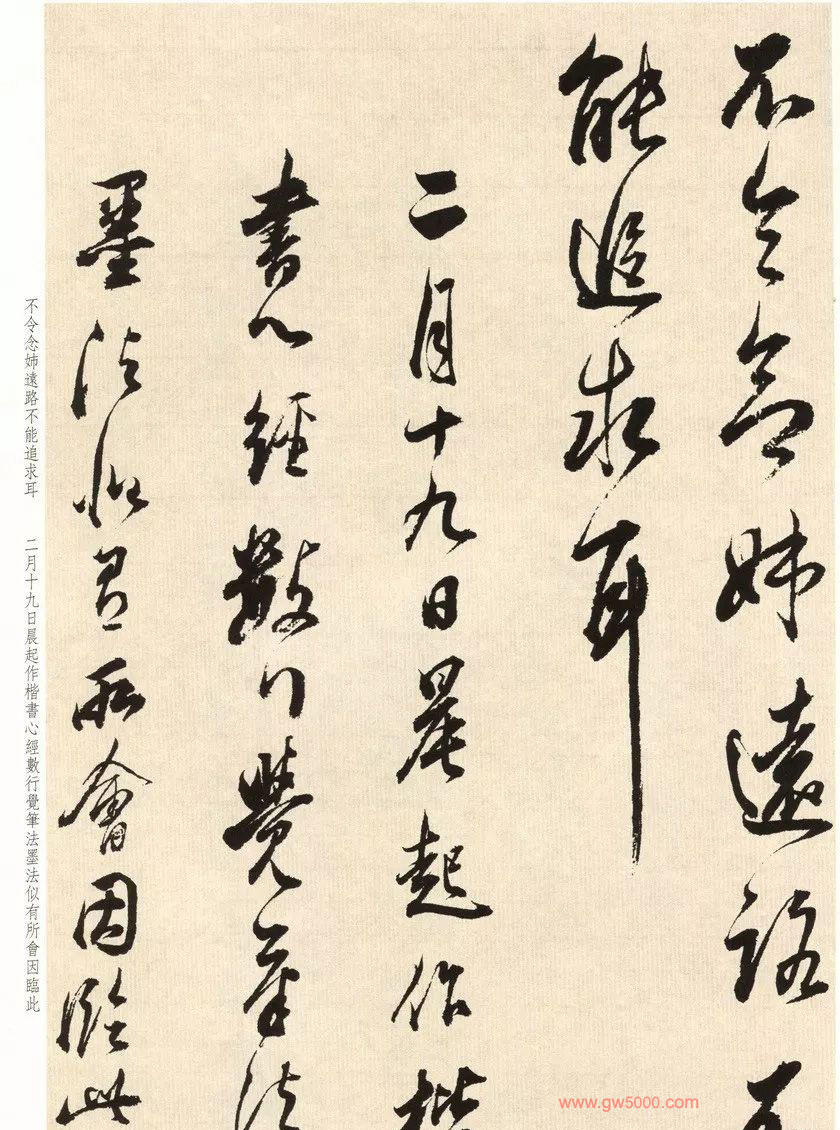 不令念姊遠路不
能追求耳
二月十九日晨起作楷
書心經數行覺筆法
墨法似有所會因臨此
不令念姉遠路不能追求耳 二月十九日晨起作楷書心經數行覺筆法墨法似有所會因臨此
www.gw5000.com